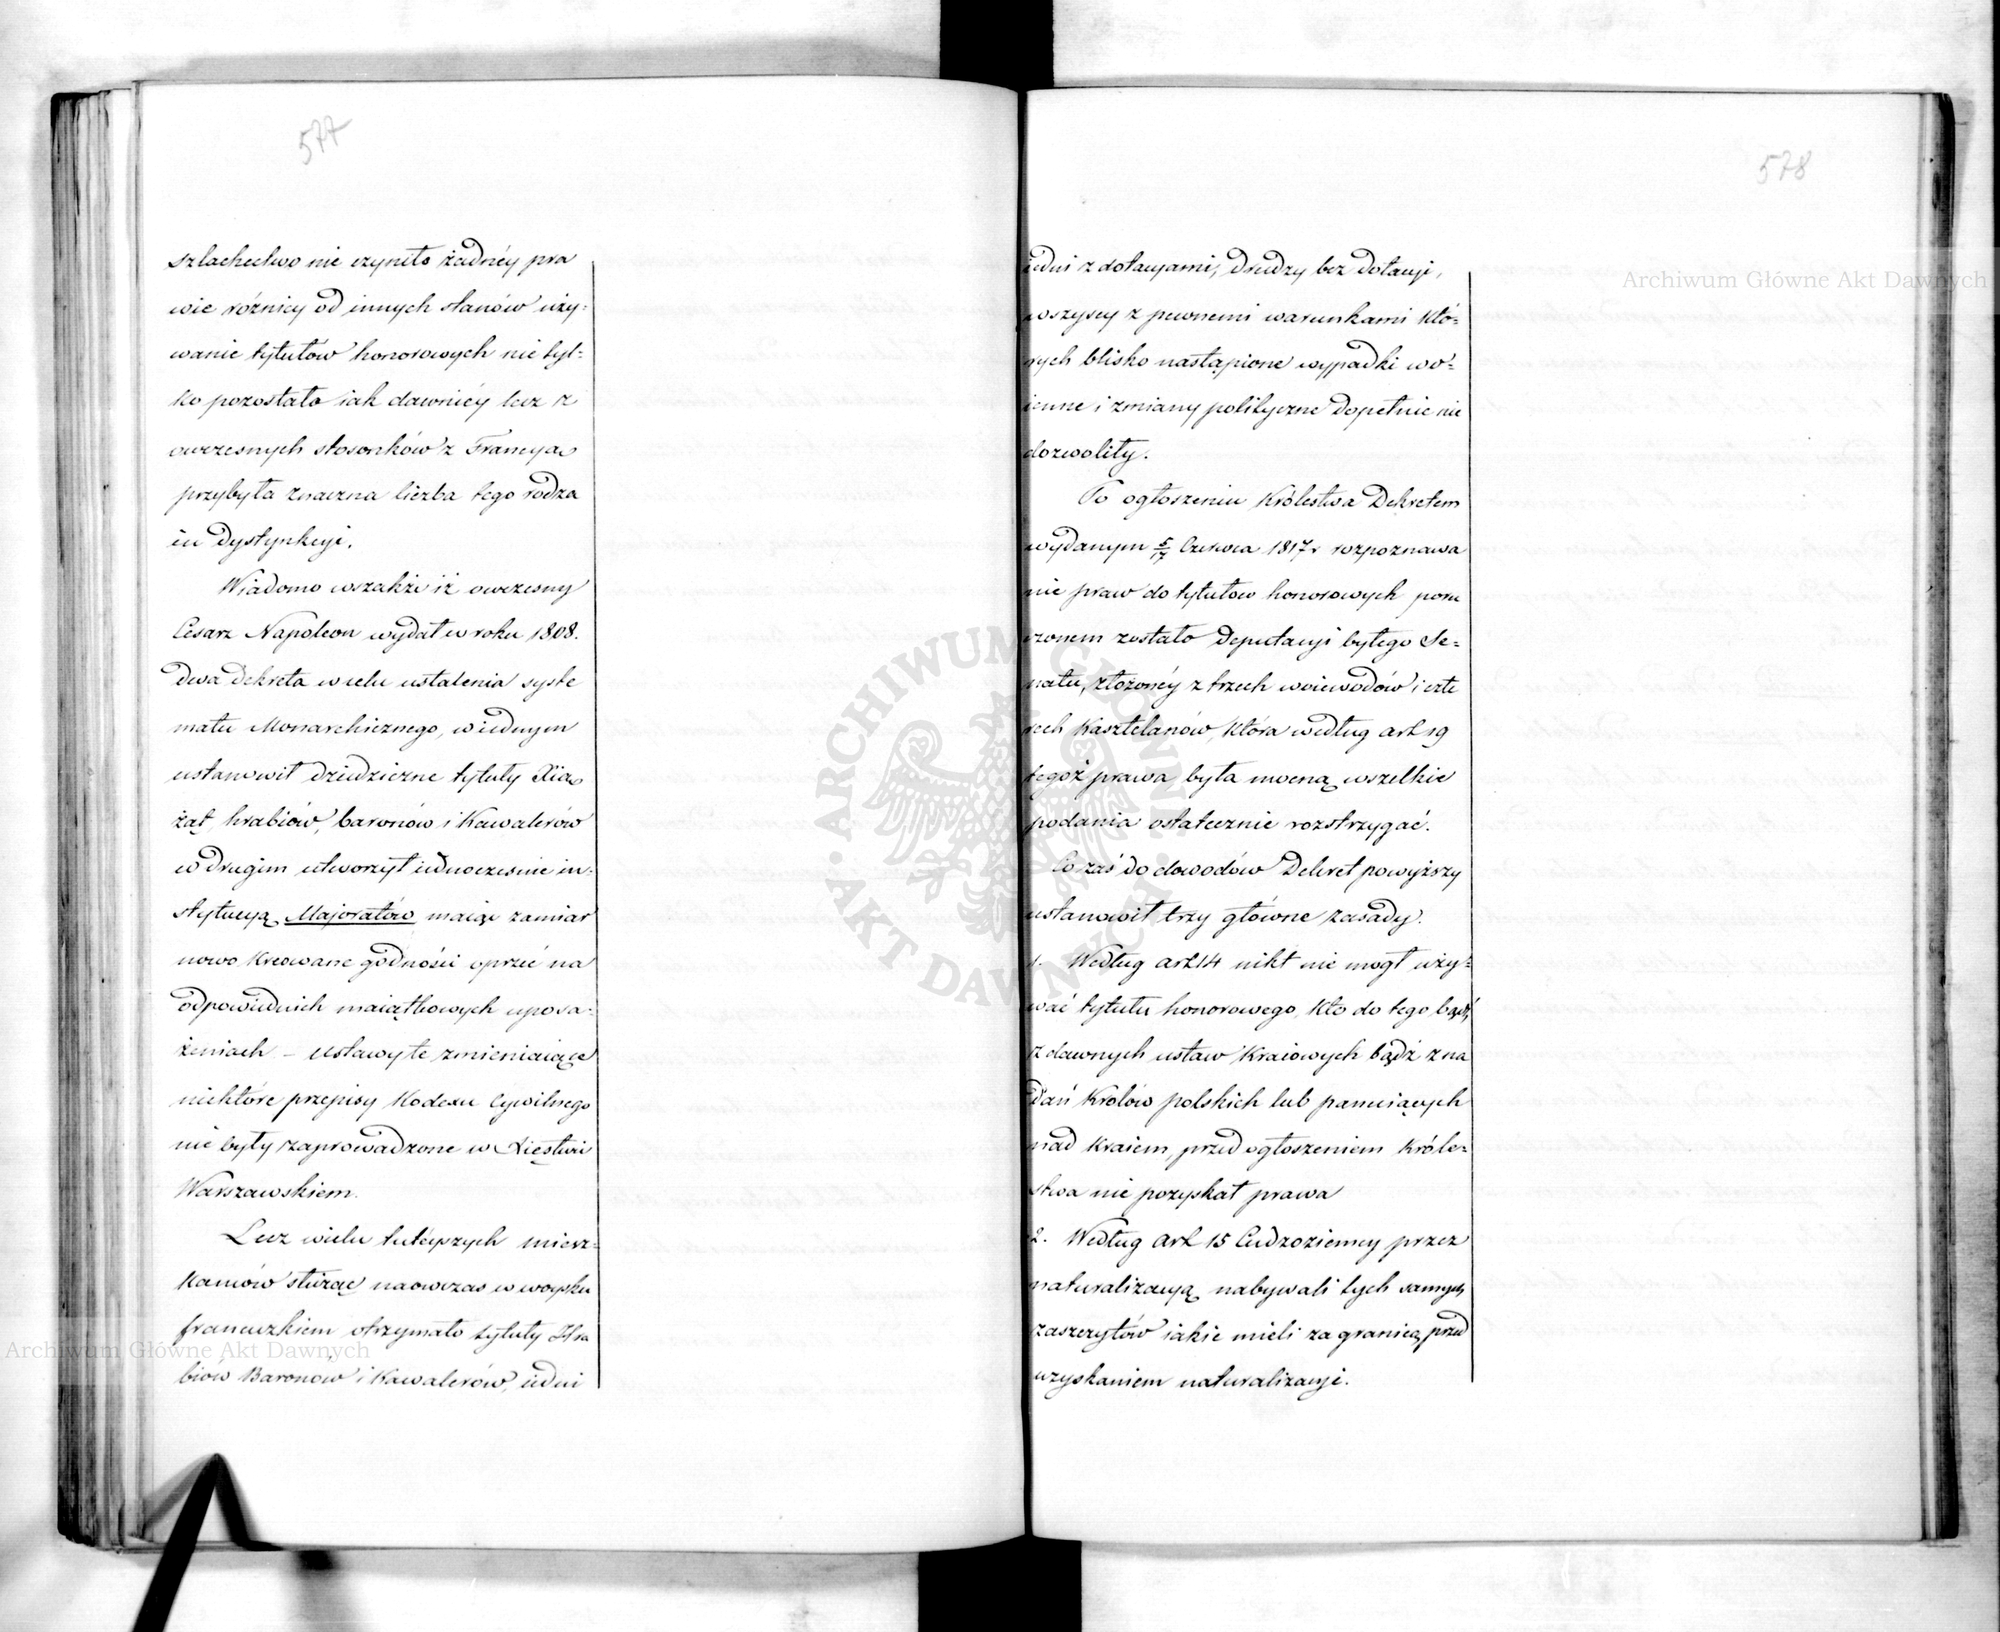 577
szlachectwo nie czyniło żadnéy pra
wie różnicy od innych stanów uży-
wanie tytułów honorowych nie tyl-
ko pozostało iak dawniéy lecz z
owczesnych stosonków z Francyą
przybyła znaczna liczba tego rodza
iu dystynkcyi.
Wiadomo wszakże iż owczesny
Cesarz Napoleon wydał w roku 1808.
dwa dekreta w celu ustalenia syste
matu Monarchicznego, w iednym
ustanowił dziedziczne tytuły Xią
żąt, hrabiów, baronów i Kawalerów
w drugim utworzył iednocześnie in-
stytucyą Majoratów maiąc zamiar
nowo kreowane godności oprzeć na
odpowiednich maiątkowych uposa-
żeniach – ustawy te zmieniaiące
niektóre przepisy Kodexu Cywilnego
nie były zaprowadzone w Xięstwie
Warszawskiem.
Lecz wielu tuteyszych miesz-
kańców służąc naowczas w woysku
francuzkiem otrzymało tytuły Hra
biów Baronów i Kawalerów, iedni
578
iedni z dotacyami, drudzy bez dotacyi,
wszyscy z pewnemi warunkami któ-
rych blisko nastąpione wypadki wo-
ienne i zmiany polityczne dopełnić nie
dozwoliły.
Po ogłoszeniu Królestwa Dekretem
wydanym 5/17 Czerwca 1817 r rozpoznawa
nie praw do tytułów honorowych poru
czonem zostało Deputacyi byłego Se-
natu, złożonéy z trzech woiewodów i czte
rech Kasztelanów, która według art 19
tegoż prawa była mocną wszelkie
podania ostatecznie rozstrzygać.
Co zaś do dowodów Dekret powyższy
ustanowił trzy główne zasady.
1. Według art 14 nikt nie mogł uży-
wać tytułu honorowego, kto do tego bądź
z dawnych ustaw Kraiowych bądź z na
dań Królów polskich lub panuiących
nad Kraiem, przed ogłoszeniem Króle-
stwa nie pozyskał prawa
2. Według art 15 Cudzoziemcy przez
naturalizacyą nabywali tych samych
zaszczytów iakie mieli za granicą przed
uzyskaniem naturalizacyi.
Archiwum Główne Akt Dawnych
Archiwum Główne Akt Dawnych
ARCHIWUM GŁÓWNE · AKT DAWNYCH ·